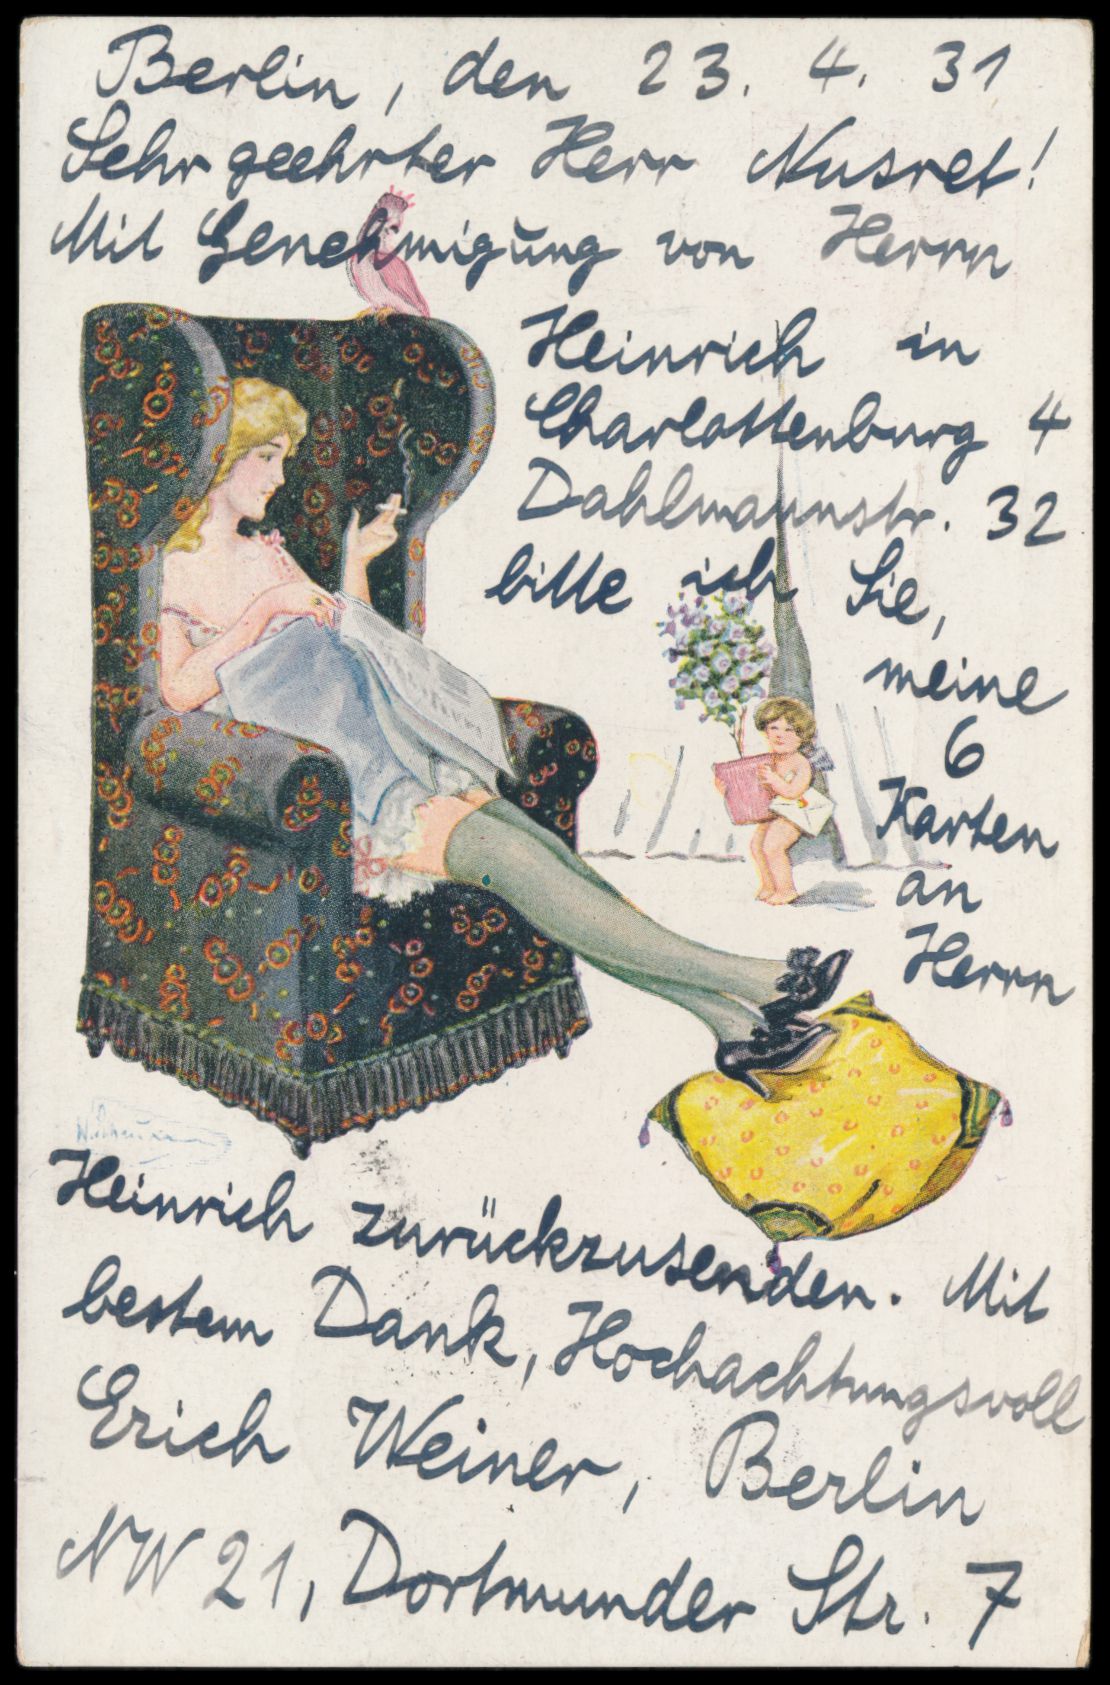 Berlin, den 23. 4. 31
Sehr geehrter Herr Nusret!
Mit Genehmigung von Herrn
Heinrich in
Charlottenburg 4
Dahlmannstr. 32
bitte ich Sie,
meine
6
Karten
an
Herrn
Heinrich zurückzusenden. Mit
bestem Dank, Hochachtungsvoll
Erich Weiner, Berlin
NW 21, Dortmunder Str. 7